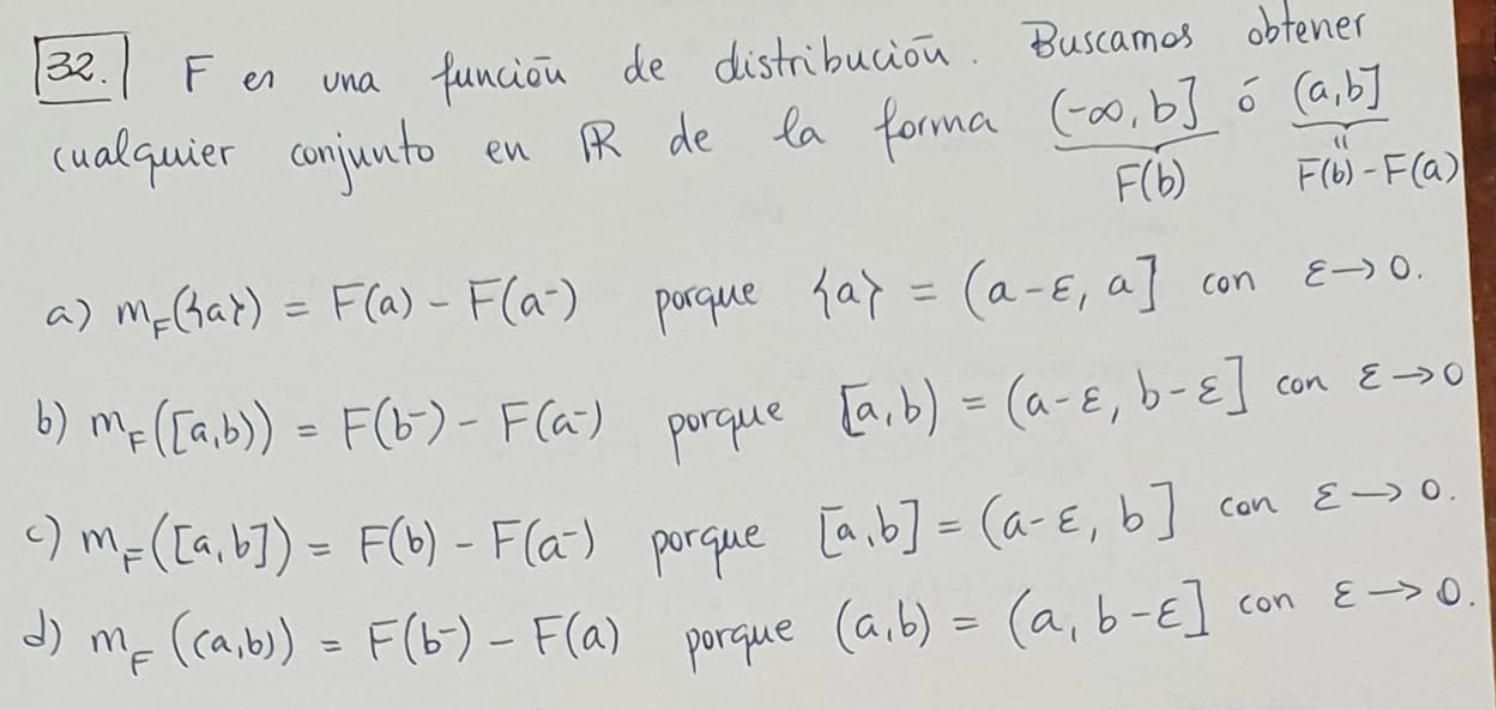 32. F es una función de distribución. Buscamos obtener
cualquier conjunto en ℝ de la forma (-∞, b] ó (a,b]
F(b) " F(b)-F(a)
a) m_F({a}) = F(a) - F(a⁻) porque {a} = (a-ε, a] con ε→0.
b) m_F([a,b)) = F(b⁻) - F(a⁻) porque [a,b) = (a-ε, b-ε] con ε→0
c) m_F([a,b]) = F(b) - F(a⁻) porque [a,b] = (a-ε, b] con ε→0.
d) m_F((a,b)) = F(b⁻) - F(a) porque (a,b) = (a, b-ε] con ε→0.